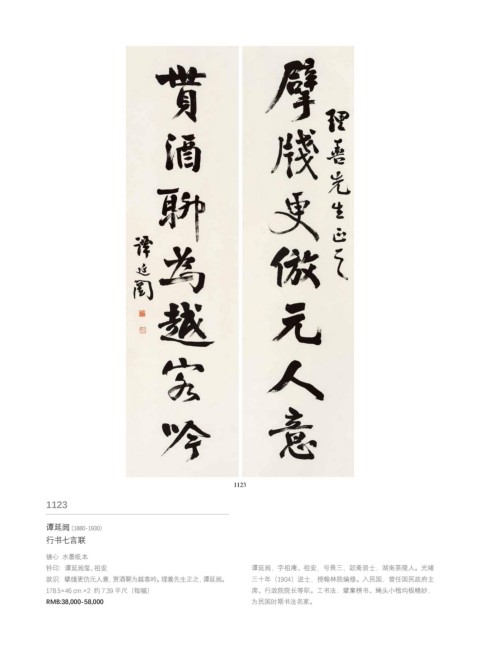 擘牋更倣元人意
理善先生正之
貰酒聊為越客吟
譚延闓
1123
1123
谭延闿 (1880-1930)
行书七言联
镜心 水墨纸本
钤印：谭延闿玺、祖安
款识：擘牋更仿元人意，贳酒聊为越客吟。理善先生正之，谭延闿。
178.5×46 cm ×2 约 7.39 平尺（每幅）
RMB:38,000-58,000
谭延闿，字祖庵、祖安，号畏三、
湖南茶陵人。光绪
三十年（1904）进士，授翰林院编修。入民国，曾任国民政府主
席、行政院院长等职。工书法，擘窠榜书、蝇头小楷均极精妙，
为民国时期书法名家。